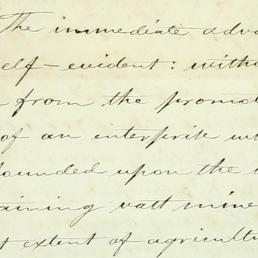 The immediate adva
elf-evident: withou
from the promot
of an enterprise w
founded upon the
aining vast mine
t extent of agricultu